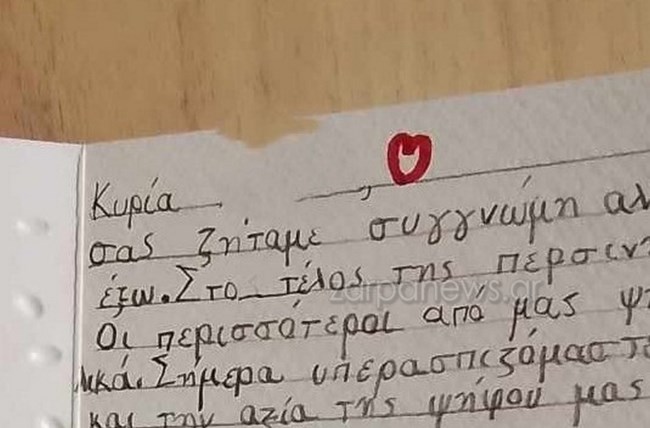 Κυρία ,
σας ζητάμε συγγνώμη αν
έξω. Στο τέλος της
zarpanews.gr
Οι περισσότεροι από μας
Σήμερα υπερασπιζόμαστε
και την αξία της ψήφου μας